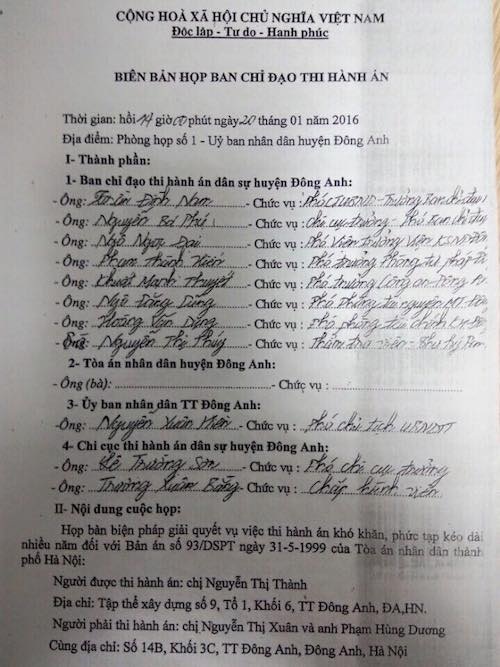 CỘNG HOÀ XÃ HỘI CHỦ NGHĨA VIỆT NAM
Độc lập - Tự do - Hạnh phúc
BIÊN BẢN HỌP BAN CHỈ ĐẠO THI HÀNH ÁN
Thời gian: hồi 14 giờ 00 phút ngày 20 tháng 01 năm 2016
Địa điểm: Phòng họp số 1 - Uỷ ban nhân dân huyện Đông Anh
I- Thành phần:
1- Ban chỉ đạo thi hành án dân sự huyện Đông Anh:
- Ông: Đình Nam - Chức vụ : Phó CT.UBND - Trưởng Ban chỉ đạo
- Ông: Nguyễn Bá Phú - Chức vụ : Chi cục trưởng - Phó Ban chỉ đạo
- Ông: Ngô Ngọc Đại - Chức vụ : Phó Viện trưởng Viện KSND
- Ông: Phạm Thành - Chức vụ : Phó trưởng Phòng tư pháp
- Ông: Khuất Mạnh Thuyết - Chức vụ : Phó trưởng Công an
- Ông: Ngô Đăng Dũng - Chức vụ : Phó phòng tài nguyên MT
- Ông: Hoàng Văn Dũng - Chức vụ : Phó phòng tài chính KH
Nguyễn Thị Thúy - Chức vụ : Thẩm tra viên - Thư ký
2- Tòa án nhân dân huyện Đông Anh:
- Ông (bà): - Chức vụ :
3- Ủy ban nhân dân TT Đông Anh:
- Ông: Nguyễn Xuân - Chức vụ : Phó chủ tịch UBNDTT
4- Chi cục thi hành án dân sự huyện Đông Anh:
- Ông: Lê Trường Sơn - Chức vụ : Phó chi cục trưởng
- Ông: Trương Xuân Bằng - Chức vụ : Chấp hành viên
II- Nội dung cuộc họp:
Họp bàn biện pháp giải quyết vụ việc thi hành án khó khăn, phức tạp kéo dài
nhiều năm đối với Bản án số 93/DSPT ngày 31-5-1999 của Tòa án nhân dân thành
phố Hà Nội:
Người được thi hành án: chị Nguyễn Thị Thành
Địa chỉ: Tập thể xây dựng số 9, Tổ 1, Khối 6, TT Đông Anh, ĐA,HN.
Người phải thi hành án: chị Nguyễn Thị Xuân và anh Phạm Hùng Dương
Cùng địa chỉ: Số 14B, Khối 3C, TT Đông Anh, Đông Anh, Hà Nội